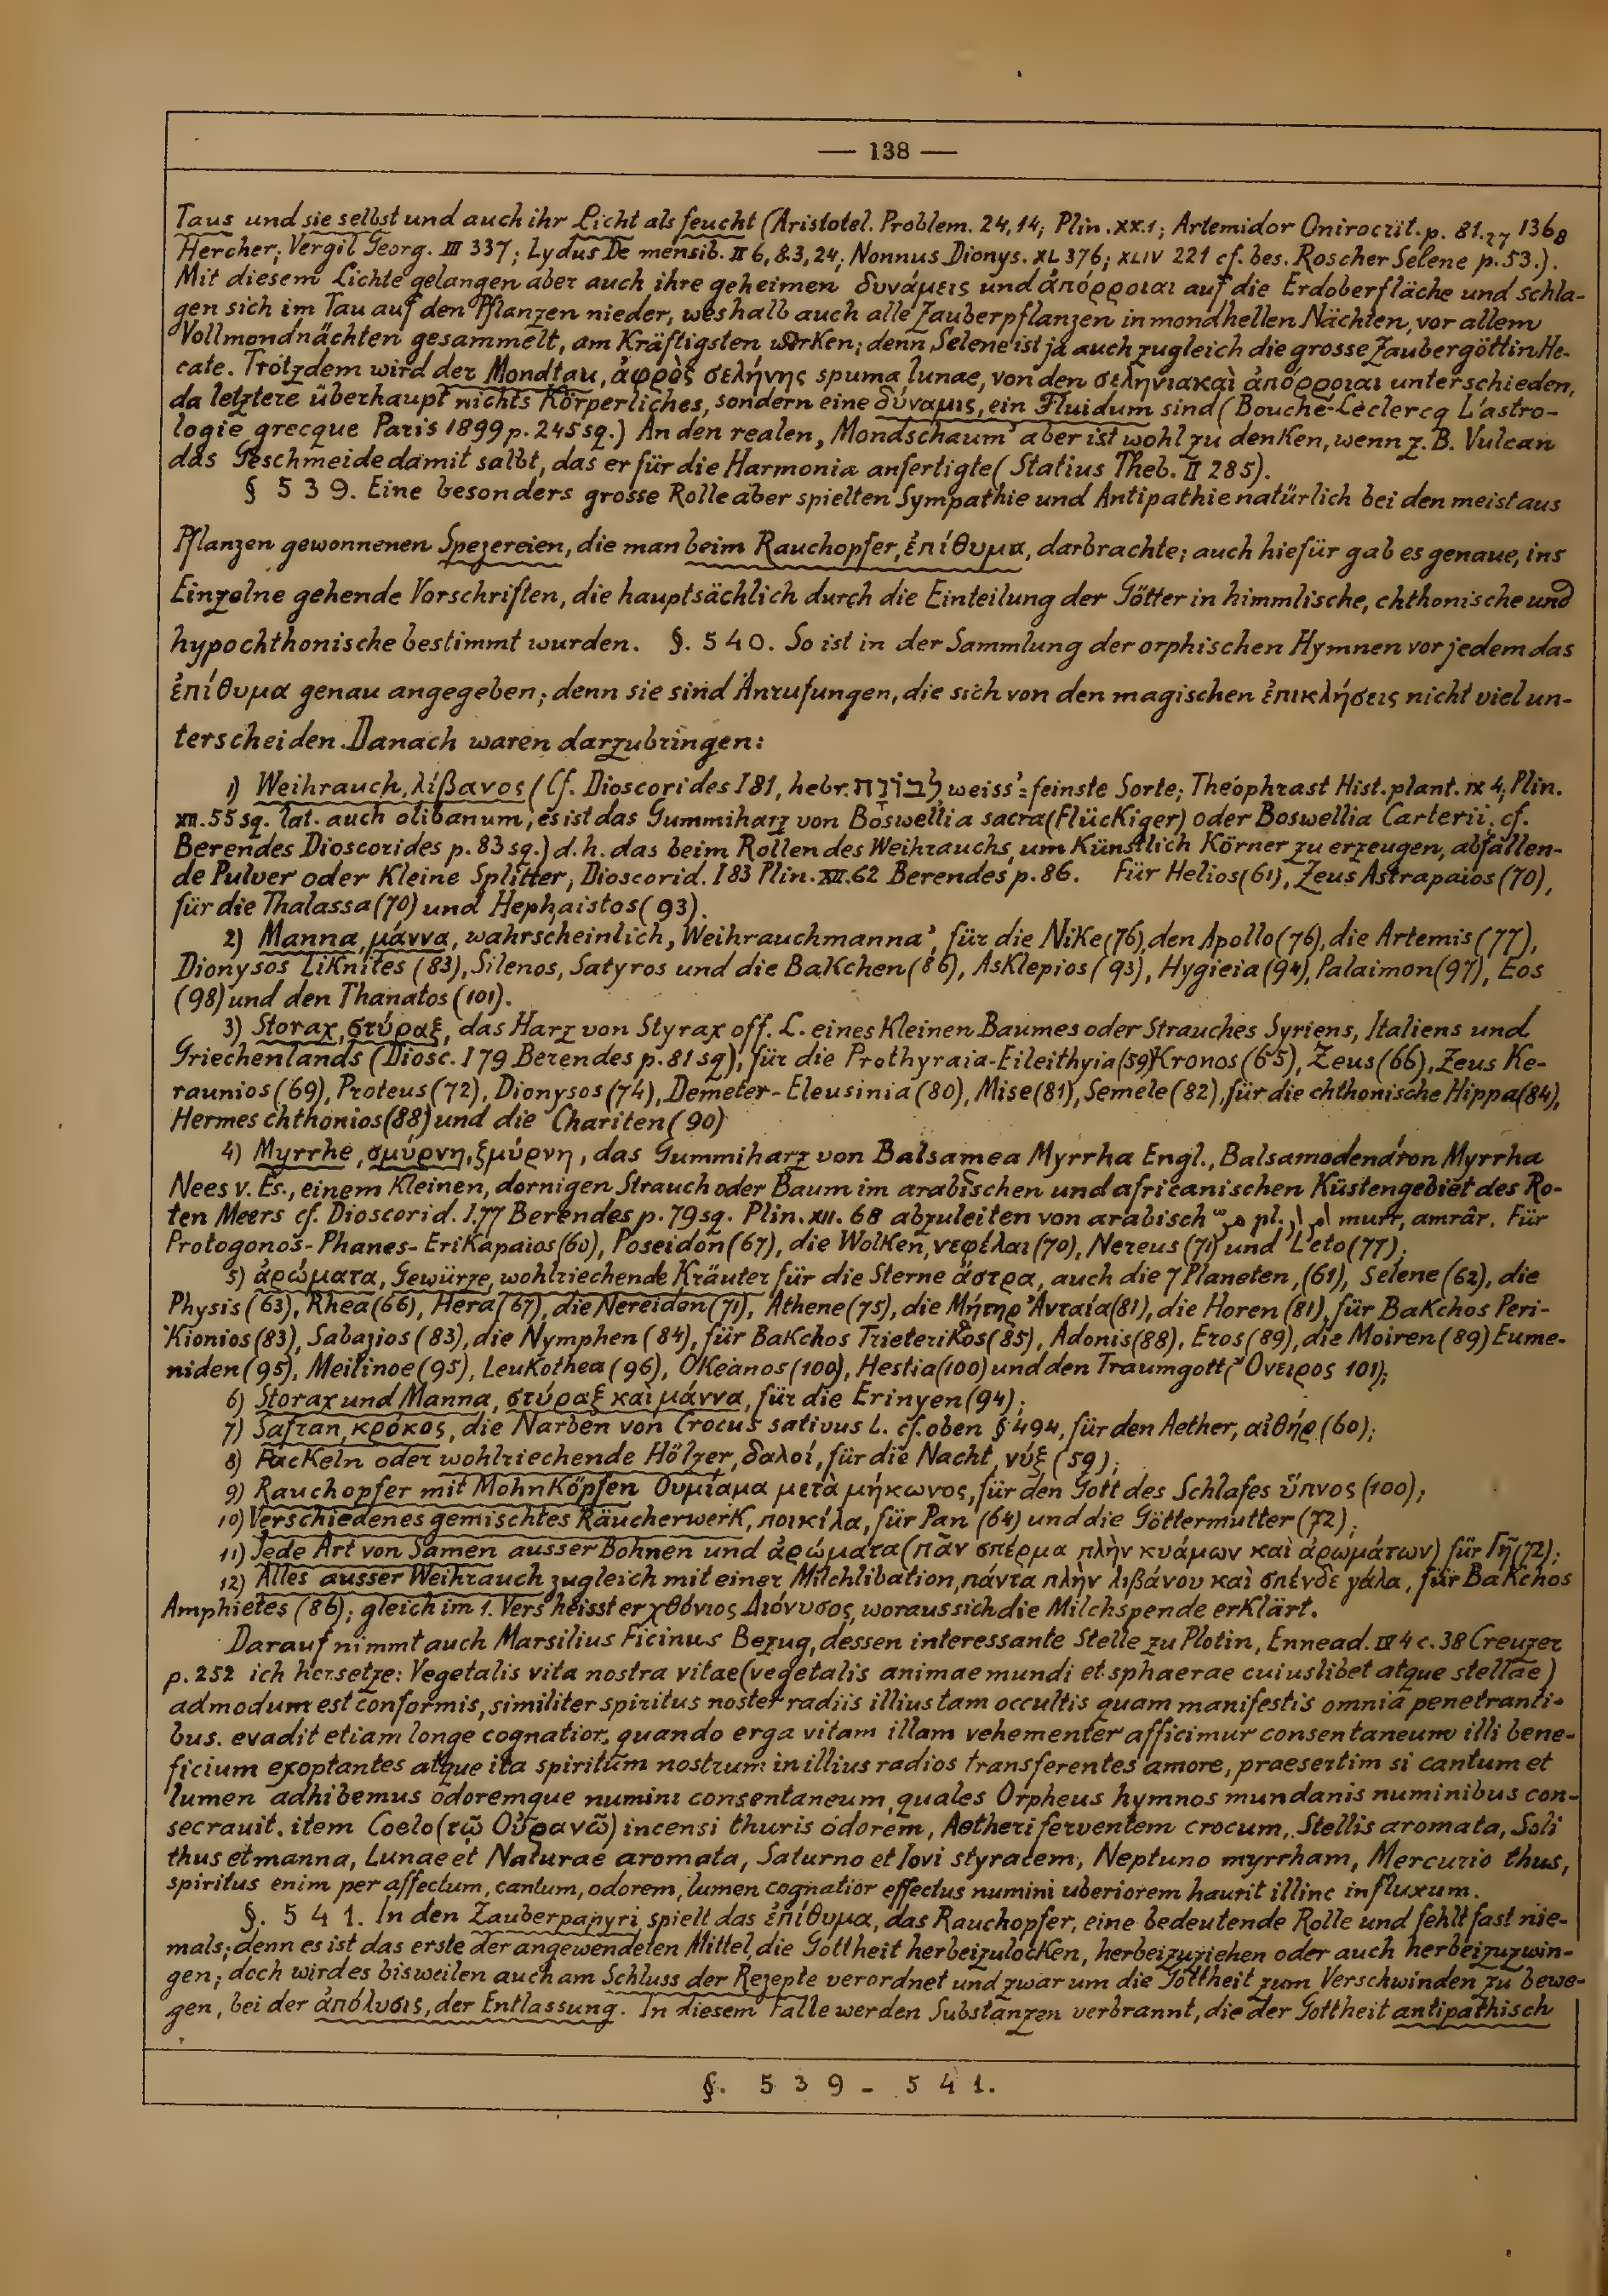 — 138 —
Taus und sie selbst und auch ihr Licht als feucht (Aristotel. Problem. 24,14; Plin. XX.1; Artemidor Onirocrit. p. 81.27 1368
Hercher; Vergil Georg. III 337; Lydus De mensib. II 6, 8.3, 24; Nonnus Dionys. XL 376; XLIV 221 cf. bes. Roscher Selene p. 53.).
Mit diesem Lichte gelangen aber auch ihre geheimen δυνάμεις und ἀπόρροιαι auf die Erdoberfläche und schla-
gen sich im Tau auf den Pflanzen nieder, weshalb auch alle Zauberpflanzen in mondhellen Nächten, vor allem
Vollmondnächten gesammelt, am Kräftigsten wirken; denn Selene ist ja auch zugleich die grosse Zaubergöttin He-
cate. Trotzdem wird der Mondtau, ἀφρὸς σελήνης spuma lunae, von den σεληνιακαὶ ἀπόρροιαι unterschieden,
da letztere überhaupt nichts Körperliches, sondern eine δύναμις, ein Fluidum sind (Bouché-Leclercq L'astro-
logie grecque Paris 1899 p. 245 sq.) An den realen ‚Mondschaum' aber ist wohl zu denken, wenn z. B. Vulcan
das Geschmeide damit salbt, das er für die Harmonia anfertigte (Statius Theb. II 285).
§ 539. Eine besonders grosse Rolle aber spielten Sympathie und Antipathie natürlich bei den meist aus
Pflanzen gewonnenen Spezereien, die man beim Rauchopfer, ἐπίθυμα, darbrachte; auch hiefür gab es genaue, ins
Einzelne gehende Vorschriften, die hauptsächlich durch die Einteilung der Götter in himmlische, chthonische und
hypochthonische bestimmt wurden. §. 540. So ist in der Sammlung der orphischen Hymnen vor jedem das
ἐπίθυμα genau angegeben; denn sie sind Anrufungen, die sich von den magischen ἐπικλήσεις nicht viel un-
terscheiden. Danach waren darzubringen:
1) Weihrauch, λίβανος (Cf. Dioscorides I 81, hebr. לבונה ‚weiss' = feinste Sorte; Theophrast Hist. plant. IX 4; Plin.
XII. 55 sq. lat. auch olibanum; es ist das Gummiharz von Boswellia sacra (Flückiger) oder Boswellia Carterii. cf.
Berendes Dioscorides p. 83 sq.) d. h. das beim Rollen des Weihrauchs, um Künstlich Körner zu erzeugen, abfallen-
de Pulver oder Kleine Splitter; Dioscorid. I 83 Plin. XII. 62 Berendes p. 86. Für Helios (61), Zeus Astrapaios (70),
für die Thalassa (70) und Hephaistos (93).
2) Manna, μάννα, wahrscheinlich ‚Weihrauchmanna', für die Nike (76), den Apollo (76), die Artemis (77),
Dionysos Liknites (83), Silenos, Satyros und die Bakchen (86), Asklepios (93), Hygieia (94), Palaimon (97), Eos
(98) und den Thanatos (101).
3) Storax, στύραξ, das Harz von Styrax off. L. eines Kleinen Baumes oder Strauches Syriens, Italiens und
Griechenlands (Diosc. I 79 Berendes p. 81 sq); für die Prothyraia-Eileithyia (59) Kronos (65), Zeus (66), Zeus Ke-
raunios (69), Proteus (72), Dionysos (74), Demeter-Eleusinia (80), Mise (81), Semele (82), für die chthonische Hippa (84),
Hermes chthonios (88) und die Chariten (90)
4) Myrrhe, σμύρνη, ξμύρνη, das Gummiharz von Balsamea Myrrha Engl., Balsamodendron Myrrha
Nees v. Es., einem Kleinen, dornigen Strauch oder Baum im arabischen und africanischen Küstengebiet des Ro-
ten Meers cf. Dioscorid. I.77 Berendes p. 79 sq. Plin. XII. 68 abzuleiten von arabisch pl. murr, amrâr. Für
Protogonos-Phanes-Erikapaios (60), Poseidon (67), die Wolken, νεφέλαι (70), Nereus (71) und Leto (77);
5) ἀρώματα, Gewürze, wohlriechende Kräuter für die Sterne ἄστρα, auch die 7 Planeten, (61), Selene (62), die
Physis (63), Rhea (66), Hera (67), die Nereiden (71), Athene (75), die Μήτηρ Ἀνταία (81), die Horen (81), für Bakchos Peri-
Kionios (83), Sabazios (83), die Nymphen (84), für Bakchos Trieterikos (85), Adonis (88), Eros (89), die Moiren (89) Eume-
niden (95), Meilinoe (95), Leukothea (96), Okeanos (100), Hestia (100) und den Traumgott (Ὄνειρος 101);
6) Storax und Manna, στύραξ καὶ μάννα, für die Erinyen (94);
7) Safran, κρόκος, die Narben von Crocus sativus L. cf. oben § 494, für den Aether, αἰθήρ (60);
8) Fackeln oder wohlriechende Hölzer, δαλοί, für die Nacht, νύξ (59);
9) Rauchopfer mit Mohnköpfen Θυμίαμα μετὰ μήκωνος, für den Gott des Schlafes ὕπνος (100);
10) Verschiedenes gemischtes Räucherwerk, ποικίλα, für Pan (64) und die Göttermutter (72);
11) Jede Art von Samen ausser Bohnen und ἀρώματα (πᾶν σπέρμα πλὴν κυάμων καὶ ἀρωμάτων) für Γῆ (72);
12) Alles ausser Weihrauch zugleich mit einer Milchlibation, πάντα πλὴν λιβάνου καὶ σπένδε γάλα, für Bakchos
Amphietes (86); gleich im 1. Vers heisst er χθόνιος Διόνυσος, woraus sich die Milchspende erklärt.
Darauf nimmt auch Marsilius Ficinus Bezug, dessen interessante Stelle zu Plotin, Ennead. IV 4 c. 38 Creuzer
p. 252 ich hersetze: Vegetalis vita nostra vitae (vegetalis animae mundi et sphaerae cuiuslibet atque stellae)
admodum est conformis, similiter spiritus noster radiis illius tam occultis quam manifestis omnia penetranti-
bus. evadit etiam longe cognatior, quando erga vitam illam vehementer afficimur consentaneum illi bene-
ficium exoptantes atque ita spiritum nostrum in illius radios transferentes amore, praesertim si cantum et
lumen adhibemus odoremque numini consentaneum, quales Orpheus hymnos mundanis numinibus con-
secrauit. item Coelo (τῷ Οὐρανῷ) incensi thuris odorem, Aetheri ferventem crocum, Stellis aromata, Soli
thus et manna, Lunae et Naturae aromata, Saturno et Iovi styracem, Neptuno myrrham, Mercurio thus,
spiritus enim per affectum, cantum, odorem, lumen cognatior effectus numini uberiorem haurit illinc influxum.
§. 541. In den Zauberpapyri spielt das ἐπίθυμα, das Rauchopfer, eine bedeutende Rolle und fehlt fast nie-
mals; denn es ist das erste der angewendeten Mittel, die Gottheit herbeizulocken, herbeizuziehen oder auch herbeizuzwin-
gen; doch wird es bisweilen auch am Schluss der Rezepte verordnet und zwar um die Gottheit zum Verschwinden zu bewe-
gen, bei der ἀπόλυσις, der Entlassung. In diesem Falle werden Substanzen verbrannt, die der Gottheit antipathisch
§. 539 - 541.